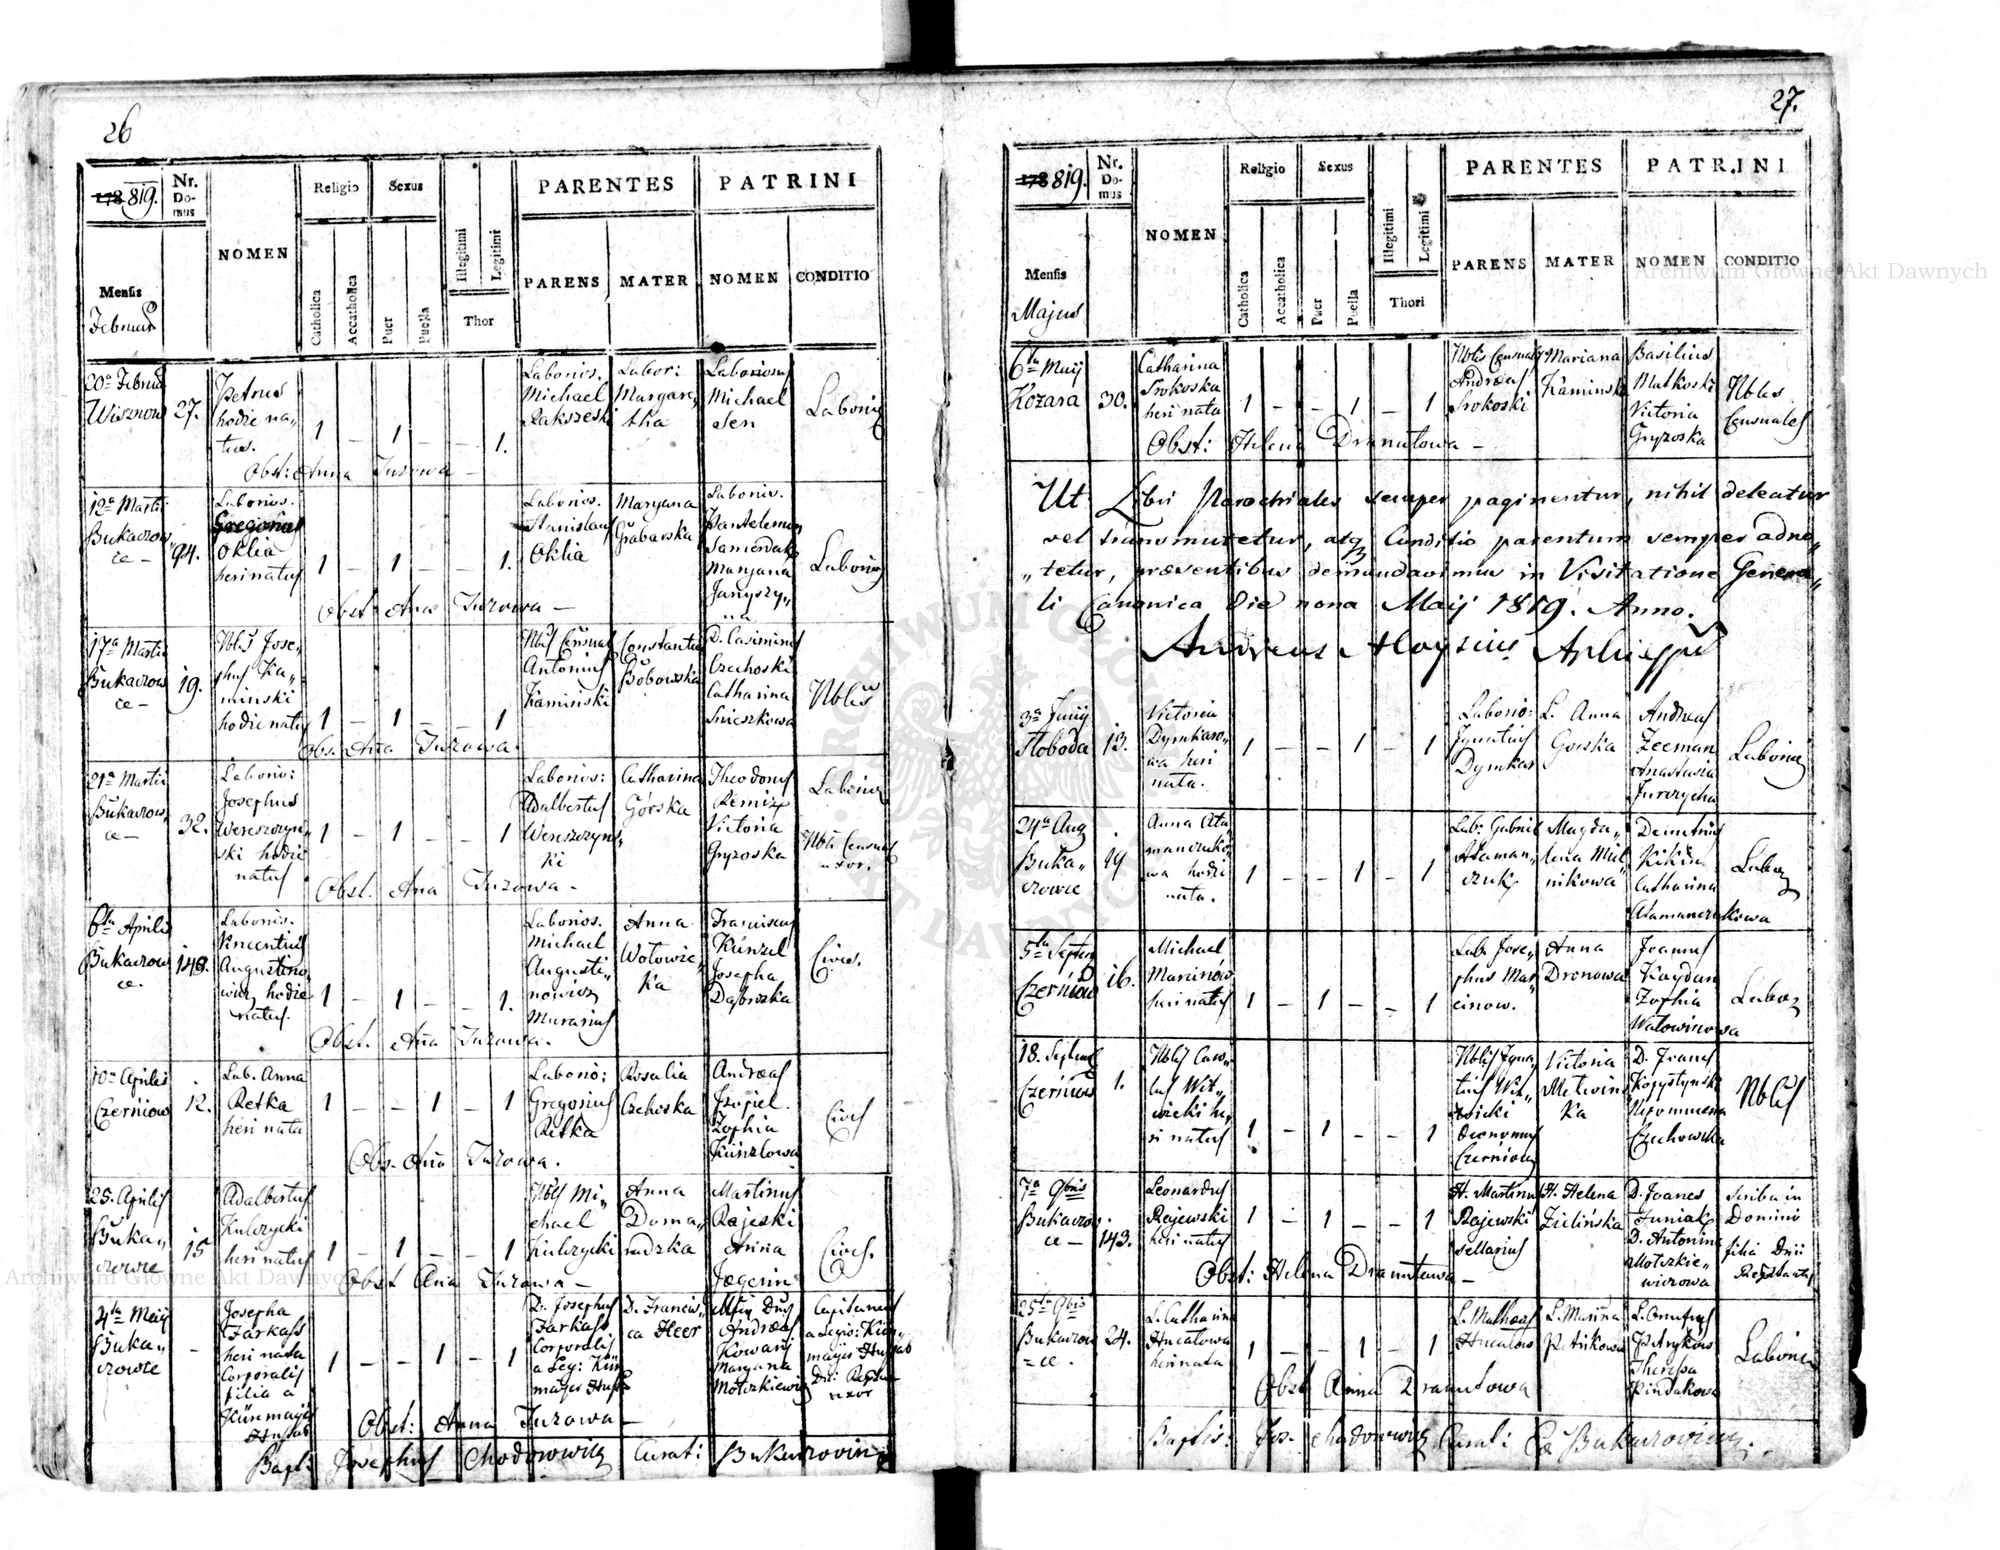 26
178 819.
Nr. Do-mus
NOMEN
Religio
Sexus
PARENTES
PATRINI
Mensis
Februar
Catholica
Accatholica
Puer
Puella
Illegitimi
Legitimi
Thor
PARENS
MATER
NOMEN
CONDITIO
20a Februar
Wisznow
27.
Petrus
hodie na„
tus.
1 – 1 – – 1.
Laborios.
Michael
Rakszeski
Labor:
Margare„
tha
Laboriosus
Michael
Sen
Laborios
Obst: Anna Turowa –
12a Martii
Bukaczow
ce –
94.
Laborios.
Gregorius
Oklia
heri natus
1 – 1 – – 1.
Laborios.
Stanislaus
Oklia
Maryana
Grabarska
Laborios.
Pantelemon
Maryana
Janyszy„
na
Laborios
Obst: Ana Turowa –
17a Martii
Bukaczow
ce –
19.
Nblis Jose„
phus Ka„
minski
hodie natus
1 – 1 – – 1
Nblis Censual
Antonius
Kaminski
Constantia
Bobowska
D. Casimirus
Czechoski
Catharina
Snieszkowa
Nbles
Obs. Ana Turowa.
21a Martii
Bukaczow„
ce –
32.
Laborio:
Josephus
Wereszczyn„
ski hodie
natus
1 – 1 – – 1
Laborios:
Adalbertus
Wereszczyns„
ki
Catharina
Górska
Theodorus
Remiz
Victoria
Gryzoska
Laborios
Nbli Censual
uxor.
Obst. Ana Turowa –
6ta Aprilis
Bukaczow
ce.
148.
Laborios.
Vincentius
Augustino„
wicz hodie
natus.
1 – 1 – – 1.
Laborios.
Michael
Augusti„
nowicz
Murarius
Anna
Wolowic„
ka
Franciscus
Künzel
Josepha
Dąbrozka
Cives.
Obst. Ana Turowa.
10ma Aprilis
Czerniow
12.
Lab. Anna
Retka
heri nata
1 – – 1 – 1
Laborio:
Gregorius
Retka
Rosalia
Czehoska
Andreas
Szopiel
Zophia
Künzlowa
Cives
Obs. Ana Turowa.
25. Aprilis
Buka„
czowce
15
Adalbertus
Kulczycki
heri natus
1 – 1 – – 1
Nblis Mi„
chael
Kulczycki
Anna
Doma„
radzka
Martinus
Rajeski
Anna
Jegerin
Cives.
Obst Ana Turowa –
4ta Maij
Buka„
czowce
–
Josepha
Farkass
heri nata
Corporalis
filia a
Künmayer
Hussar
1 – – 1 – 1
D. Josephus
Farkass
Corporalis
a Leg: Kün
mayer Huss
D. Francis„
ca Heer
Andreas
Kowary
Maryana
Motzkiewicz
Capitaneus
a Legio: Kün„
mayer Hussar
uxor
Obst: Anna Turowa –
Bapt: Josephus Chodowicz Curat: Bukaczoviensis
27.
178 819.
Nr. Do-mus
NOMEN
Religio
Sexus
PARENTES
PATRINI
Mensis
Majus
Catholica
Accatholica
Puer
Puella
Illegitimi
Legitimi
Thori
PARENS
MATER
NOMEN
CONDITIO
6ta Maij
Kozara
30.
Catharina
Srokoska
heri nata
1 – – 1 – 1
Nblis Censualis
Andreas
Srokoski
Mariana
Kaminska
Basilius
Malkoski
Victoria
Gryzoska
Nbles
Censuales
Obst: Helena Dranutowa –
Ut Libri Parochiales semper paginentur, nihil deleatur
vel transmutetur, atq Conditio parentum semper adno„
„tetur, præsentibus demandavimus in Visitatione Genera„
li Canonica Die nona Maij 1819. Anno.
Andreas Aloysius Archieppus
3a Junij
Sloboda
13.
Victoria
Dymkaro„
wa heri
nata.
1 – – 1 – 1
Laborio:
Ignatius
Dymkar
L. Anna
Gorska
Andreas
Zeeman
Anastasia
Jurczycha
Laborios
24a Aug
Buka„
czowce
19
Anna Ata„
manczuko„
wa hodie
nata.
1 – – 1 – 1
Lab: Gabriel
Ataman„
czuk
Magda„
lena Miel
nikowa
Demetrius
Kikina
Catharina
Atamanczukowa
Labor
5ta Septem
Czerniow
16.
Michael
Marcinow
heri natus
1 – 1 – – 1
Lab. Jose„
phus Mar„
cinow.
Anna
Dronowa
Joannes
Kaydan
Zophia
Walowinowa
Labor
18. Septemb
Czerniow
1.
Nblis Caro„
lus Wit„
wicki he„
ri natus
1 – 1 – – 1
Nblis Igna
tius Wit„
wicki
Oeconomus
Czerniow
Victoria
Metwins
ka
D. Franc
Kopystynski
Nepomucena
Czechowska
Nblis
7a 9bris
Bukaczow
ce –
143.
Leonardus
Rajewski
heri natus
1 – 1 – – 1
H. Martinus
Rajewski
sellarius
H. Helena
Zielińska
D. Joanes
Juniak
D. Antonina
Motzkie„
wiczowa
Scriba in
Dominio
filia Dni
Obst: Helena Dranutowa –
25ta 9bris
Bukaczow
= ce.
24.
L. Catharina
Hucalowa
heri nata
1 – – 1 – 1
L. Matheas
Hucalow
L. Marina
Petrikowa
L. Onufrius
Petrykow
Theressa
Pindakowa
Laborios
Obst Anna Dranutowa
Baptis: Jos. Chodowicz Curat: Ex Bukaczoviens.
Archiwum Główne Akt Dawnych
Archiwum Główne Akt Dawnych
ARCHIWUM GŁÓWNE AKT DAWNYCH